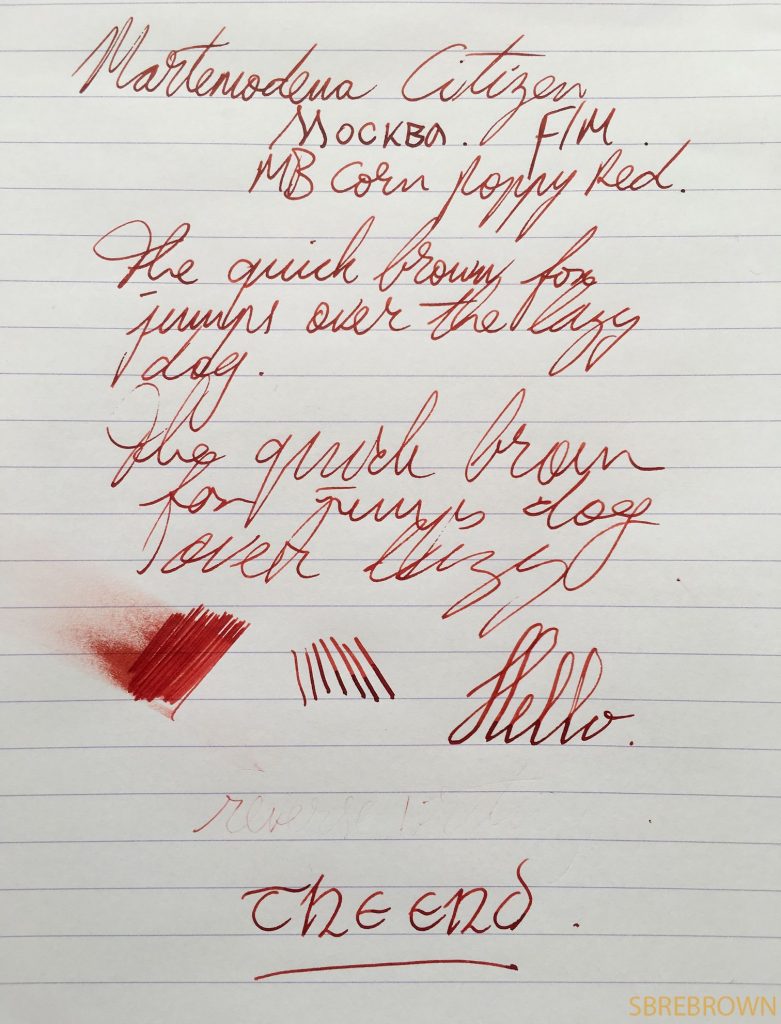 Martemodena Citizen
Москва. F/M.
MB Corn poppy Red.
The quick brown fox
jumps over the lazy
dog.
The quick brown
fox jumps dog
over lazy
Hello.
reverse
THE END.
SBREBROWN